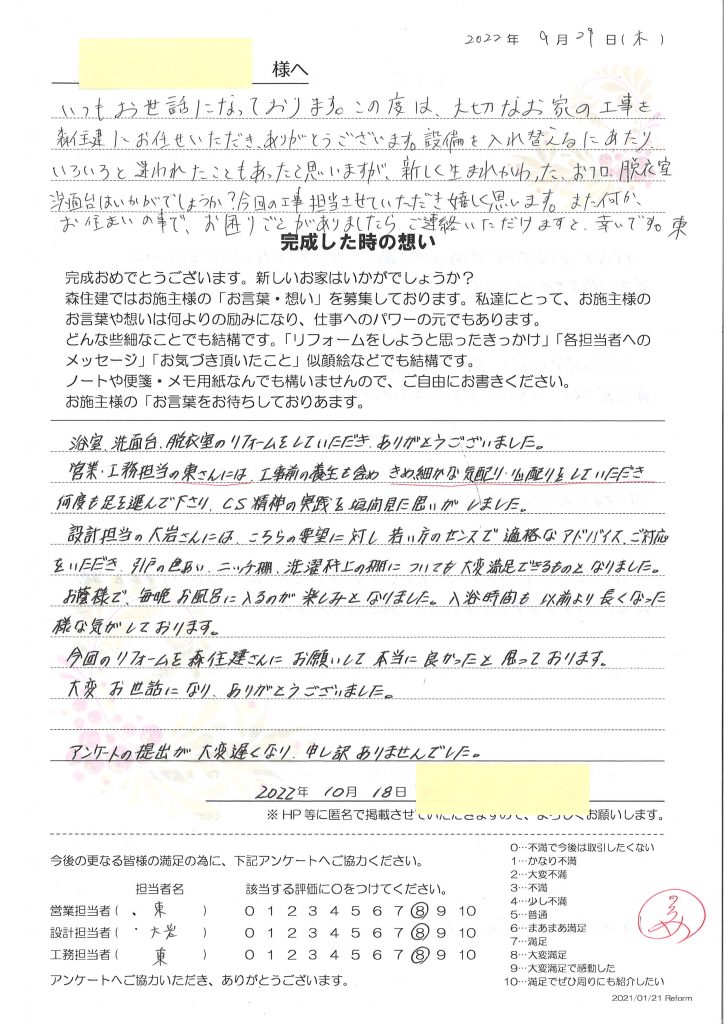 2022年 9月29日(木)
様へ
いつもお世話になっております。この度は、大切なお家の工事を
森住建にお任せいただき、ありがとうございます。設備を入れ替えるにあたり、
いろいろと迷われたこともあったと思いますが、新しく生まれかわった、お風呂、脱衣室
洗面台はいかがでしょうか?今回の工事担当させていただき嬉しく思います。また何か、
お住まいの事で、お困りごとがありましたらご連絡いただけますと、幸いです。東
完成した時の想い
完成おめでとうございます。新しいお家はいかがでしょうか?
森住建ではお施主様の「お言葉・想い」を募集しております。私達にとって、お施主様の
お言葉や想いは何よりの励みになり、仕事へのパワーの元でもあります。
どんな些細なことでも結構です。「リフォームをしようと思ったきっかけ」「各担当者への
メッセージ」「お気づき頂いたこと」似顔絵などでも結構です。
ノートや便箋・メモ用紙なんでも構いませんので、ご自由にお書きください。
お施主様の「お言葉をお待ちしておりあます。
浴室、洗面台、脱衣室のリフォームをしていただき、ありがとうございました。
営業・工務担当の東さんには、工事前の養生も含め きめ細かな気配り・心配りをしていただき
何度も足を運んで下さり、CS精神の実践を垣間見た思いがしました。
設計担当の大岩さんには、こちらの要望に対し 若い方のセンスで 適格なアドバイス、ご対応
をいただき、引戸の色あい、ニッチ棚、洗濯杆上の棚についても 大変満足できるものとなりました。
お蔭様で、毎晩 お風呂に入るのが 楽しみとなりました。入浴時間も 以前より 長くなった
様な気がしております。
今回のリフォームを 森住建さんに お願いして 本当に 良かったと 思っております。
大変 お世話になり、ありがとうございました。
アンケートの提出が 大変遅くなり、申し訳 ありませんでした。
2022年 10月 18日
※HP等に匿名で掲載させていただきますので、よろしくお願いします。
今後の更なる皆様の満足の為に、下記アンケートへご協力ください。
担当者名 該当する評価に〇をつけてください。
営業担当者( 東 ) 0 1 2 3 4 5 6 7 8 9 10
設計担当者( 大岩 ) 0 1 2 3 4 5 6 7 8 9 10
工務担当者( 東 ) 0 1 2 3 4 5 6 7 8 9 10
アンケートへご協力いただき、ありがとうございます。
0…不満で今後は取引したくない
1…かなり不満
2…大変不満
3…不満
4…少し不満
5…普通
6…まあまあ満足
7…満足
8…大変満足
9…大変満足で感動した
10…満足でぜひ周りにも紹介したい
2021/01/21 Reform